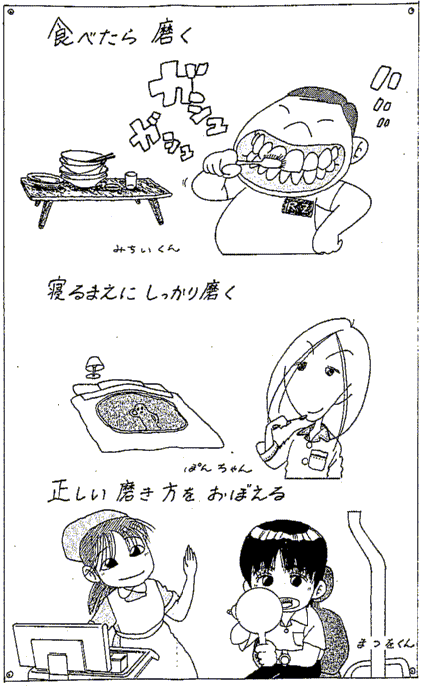 食べたら 磨く
ガシュ
ガシュ
みちいくん
寝るまえに しっかり磨く
ぽんちゃん
正しい 磨き方を おぼえる
まつをくん